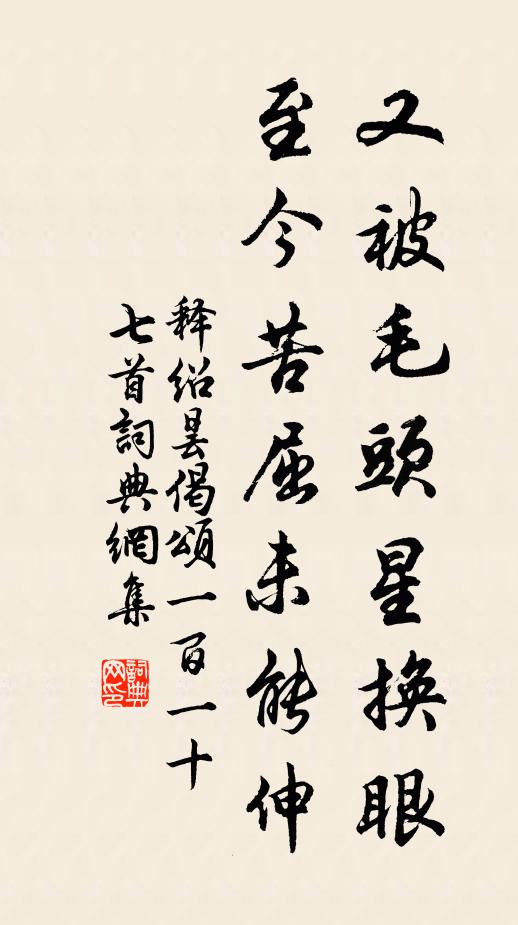 又被毛頭星換眼
至今苦屈未能伸
释紹曇偈頌一百一十
七首詞典網集
詞典网印